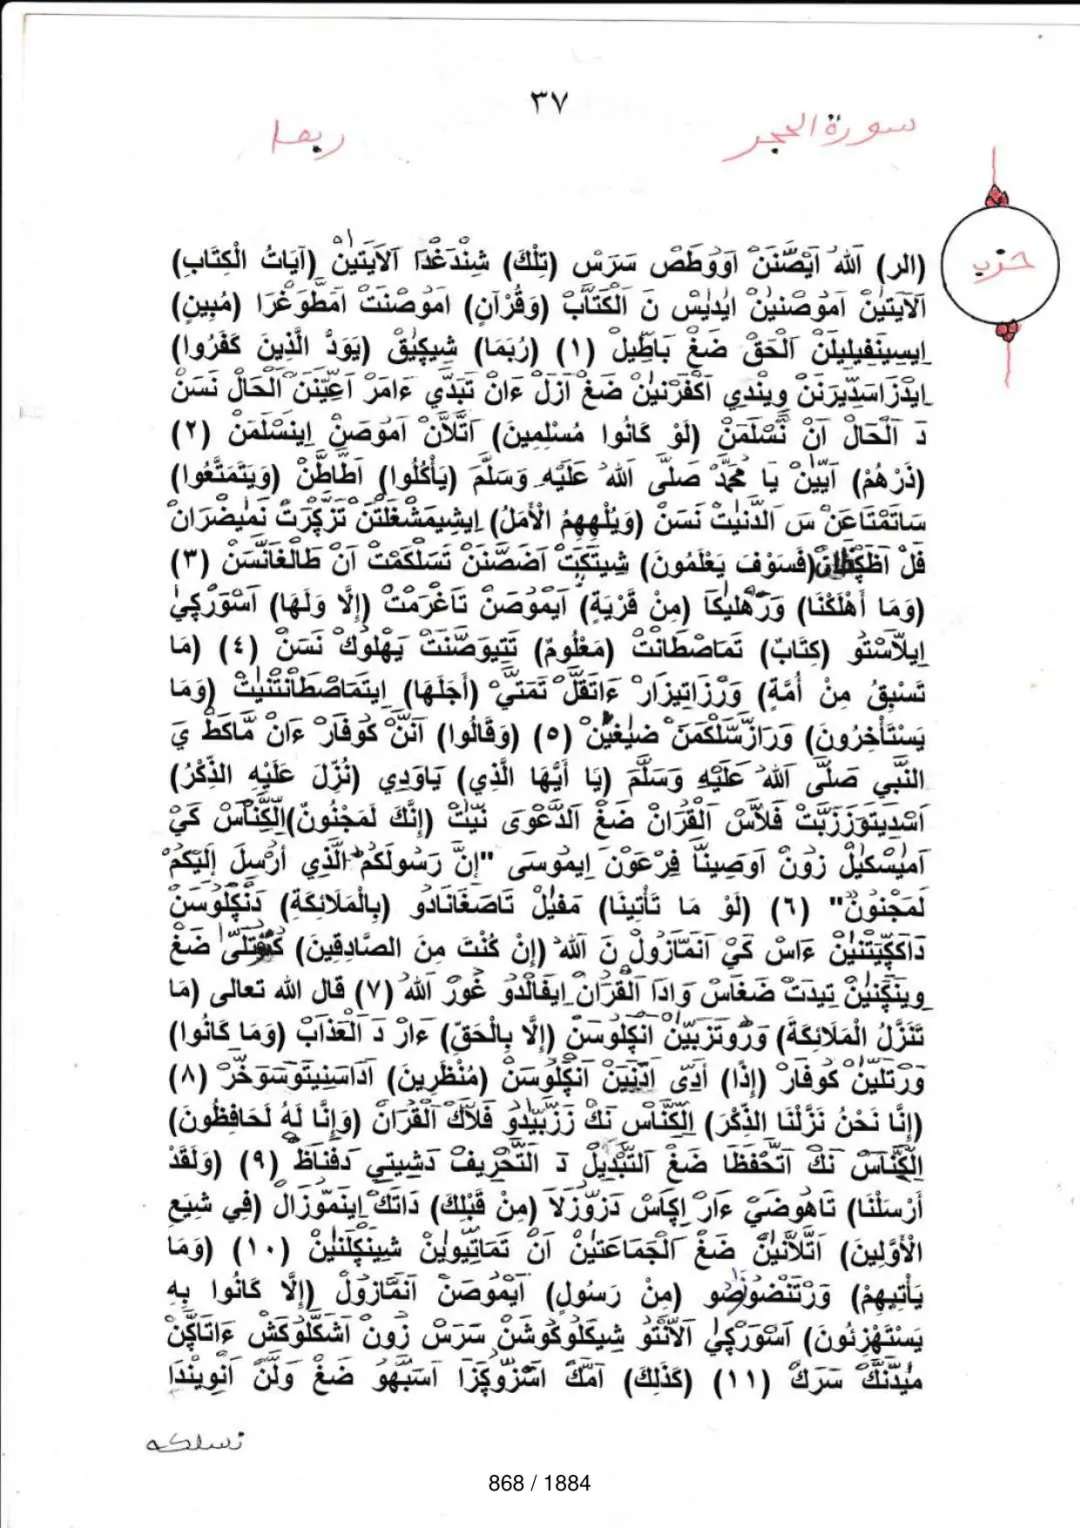 ٣٧
سورة الحجر
ربعا
حزب
(الر) اَللهُ اَيْصَّنَنْ اَوْوَطَصْ سَرَسْ (تِلْكَ) شِنْدَغْدَا اَلْآيَتَيْنْ (آيَاتُ الْكِتَابِ)
اَلْآيَتَيْنْ اَمَوْصَنَيْنْ اَيْدَيْسْ نَ اَلْكَتَّابْ (وَقُرْآنٍ) اَمَوْصَنَتْ اَمَطَّوَغْرَا (مُبِينٍ)
اِيسِينَفِيلِيلَنْ اَلْحَقْ ضَغْ بَاطِيلْ (١) (رُبَمَا) شِيكِيَقْ (يَوَدُّ الَّذِينَ كَفَرُوا)
اِيْدْزَاسَدِّيرَنَنْ وِينْدِي اَكْفَرْنَيْنْ ضَغْ اَزَلْ ءَانْ تَبَدِّي ءَامَرْ اَعِيَّنَنْ اَلْحَالْ نَسَنْ
دَ اَلْحَالْ اَنْ نَّسْلَمَنْ (لَوْ كَانُوا مُسْلِمِينَ) اَتَّلَّانْ اَمَوْصَنْ اِينَسْلَمَنْ (٢)
(ذَرْهُمْ) اَيِّيَنْ يَا مُحَمَّدْ صَلَّى اللهُ عَلَيْهِ وَسَلَّمَ (يَأْكُلُوا) اَطَّاطَّنْ (وَيَتَمَتَّعُوا)
سَاتَمْتَاعَنْ سَ اَلدَّنْيَتْ نَسَنْ (وَيُلْهِهِمُ الْأَمَلُ) اِيشِيمَشْغَلَتَنْ تَزْكَرَتْ نَمَيْضَرَانْ
(فَسَوْفَ يَعْلَمُونَ) شِيتَكَتْ اَضَصَّنَنْ تَسَلْكَمَتْ اَنْ طَالْغَانَّسَنْ (٣)
(وَمَا أَهْلَكْنَا) وَرْهَلِيكَا (مِنْ قَرْيَةٍ) اَيْمَوْصَنْ تَاغْرَمْتْ (إِلَّا وَلَهَا) اَسَوْرْكِيْ
اِيلَّاسْتَو (كِتَابٌ) تَمَاصْطَانْتْ (مَعْلُومٌ) تَتِيوَصَّنَتْ يَهْلُوكْ نَسَنْ (٤) (مَا
تَسْبِقُ مِنْ أُمَّةٍ) وَرْزَاتِيزَارْ ءَاتَقَلْ تَمَتَّيْ (أَجَلَهَا) اِيتَمَاصْطَانْتَنَيْتْ (وَمَا
يَسْتَأْخِرُونَ) وَرَازَّسَّلْكَمَنْ ضَيْغَيْنْ (٥) (وَقَالُوا) اَنَنَّ كُوفَارْ ءَانْ مَّاكَطْ يَ
النَّبِي صَلَّى اللهُ عَلَيْهِ وَسَلَّمَ (يَا أَيُّهَا الَّذِي) يَاوَدِي (نُزِّلَ عَلَيْهِ الذِّكْرُ)
اَسْدِيتَوَزَزَبَّتْ فَلَّاسْ اَلْقُرَانْ ضَغْ اَلدَّعْوَى نَيْتْ (إِنَّكَ لَمَجْنُونٌ) اِلْكَنَاسْ كَيْ
اَمَيْسْكِيلْ زُونْ اَوَصِينَّا فِرْعَوْنْ اِيمُوسَى "إِنَّ رَسُولَكُمُ الَّذِي أُرْسِلَ إِلَيْكُمْ
لَمَجْنُونٌ" (٦) (لَوْ مَا تَأْتِينَا) مَفَيْلْ تَاصَغَانَادُو (بِالْمَلَائِكَةِ) دَنْكِلُوسَنْ
دَاكَكِيَتَنَيْنْ ءَاسْ كَيْ اَنَمَّازُولْ نَ اَللهْ (إِنْ كُنْتَ مِنَ الصَّادِقِينَ) ضَغْ
وِينَكِّنَيْنْ تِيدَتْ ضَغَاسْ وَادَا اَلْقُرَانْ اِيفَالْدُو غُورْ اَللهْ (٧) قال الله تعالى (مَا
تَنَزَّلُ الْمَلَائِكَةَ) وَرُوتَزَبِّيَنْ اَنْكِلُوسَنْ (إِلَّا بِالْحَقِّ) ءَارْ دَ اَلْعَذَابْ (وَمَا كَانُوا)
وَرْتَلِّيَنْ كُوفَارْ (إِذًا) أَدِّى اَدِّنِيَنْ اَنْكِلُوسَنْ (مُنْظَرِينَ) اَدَاسَنِيتَوْسَوَخَّرْ (٨)
(إِنَّا نَحْنُ نَزَّلْنَا الذِّكْرَ) اِلْكَنَاسْ نَكْ زَزَّبَيْدُو فَلَاكْ اَلْقُرَانْ (وَإِنَّا لَهُ لَحَافِظُونَ)
اِلْكَنَاسْ نَكْ اَتَّحْفَظَا ضَغْ اَلتَّبْدِيلْ دَ اَلتَّحْرِيفْ دَشِيتِي دَفْنَاظْ (٩) (وَلَقَدْ
أَرْسَلْنَا) تَاهُوضَيْ ءَارْ اِكَاسْ دَزُوزَلَا (مِنْ قَبْلِكَ) دَاتَكْ اِينَمَّوزَالْ (فِي شِيَعِ
الْأَوَّلِينَ) اَتَّلَّانَيْنْ ضَغْ اَلْجَمَاعَتَيْنْ اَنْ تَمَاتِيوَيْنْ شِينَكْلَنَيْنْ (١٠) (وَمَا
يَأْتِيهِمْ) (مِنْ رَسُولٍ) اَيْمُوصَنْ اَنَمَّازُولْ (إِلَّا كَانُوا بِهِ
يَسْتَهْزِئُونَ) اَسَوْرْكِيْ اَلَّانْتَوْ شِيكَلُوكُوشَنْ سَرَسْ زُونْ اَشَكْلُوكَشْ ءَاتَاكَنْ
مَيْدَّنَّكْ سَرَكْ (١١) (كَذَلِكَ) اَمَّكْ اَسَزُّوكَزَا اَسَبَّهَوْ ضَغْ وَلَّنْ اَنْوِينْدَا
نسلكه
868 / 1884